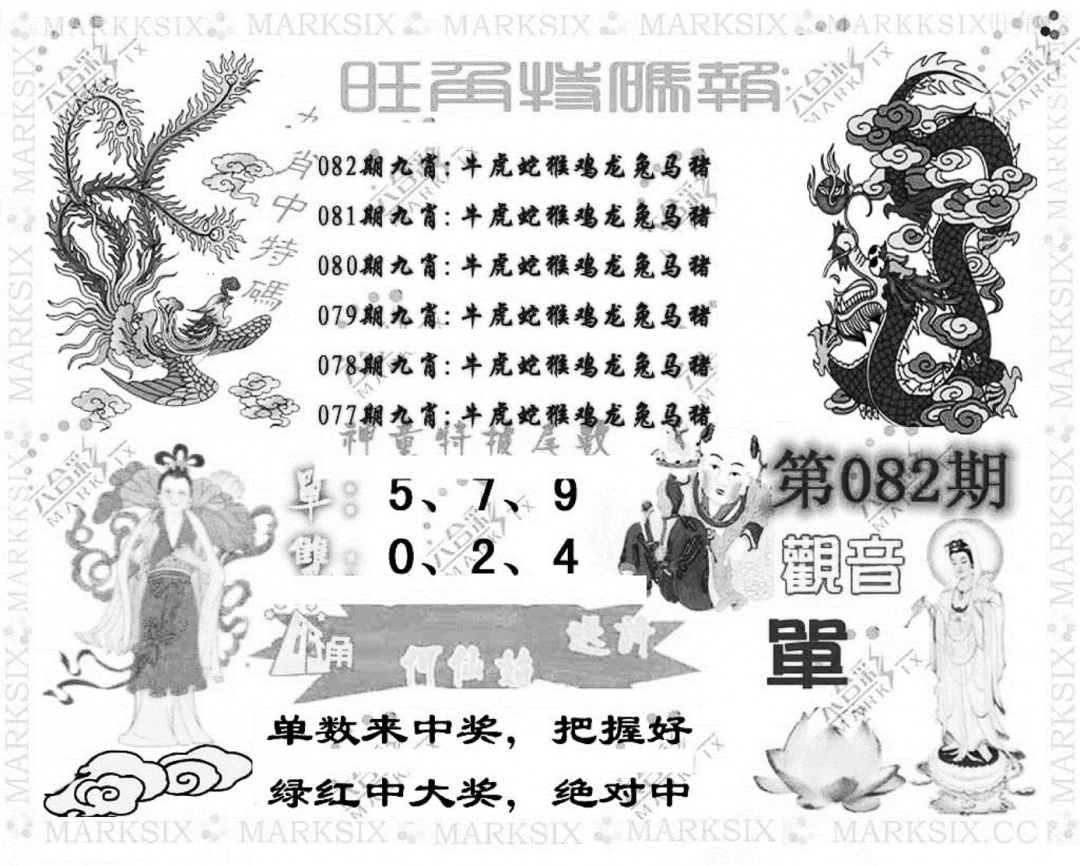 MARKKSIX MARKSIX MARKSIX MARKSIX MARKKSIX
旺角特碼報
九肖中特碼
082期九肖: 牛虎蛇猴鸡龙兔马猪
081期九肖: 牛虎蛇猴鸡龙兔马猪
080期九肖: 牛虎蛇猴鸡龙兔马猪
079期九肖: 牛虎蛇猴鸡龙兔马猪
078期九肖: 牛虎蛇猴鸡龙兔马猪
077期九肖: 牛虎蛇猴鸡龙兔马猪
神童特搜尾数
單: 5、7、9
雙: 0、2、4
第082期
觀音
單
何仙姑
单数来中奖，把握好
绿红中大奖，绝对中
MARKSIX MARKSIX MARKSIX MARKSIX MARKSIX.CC